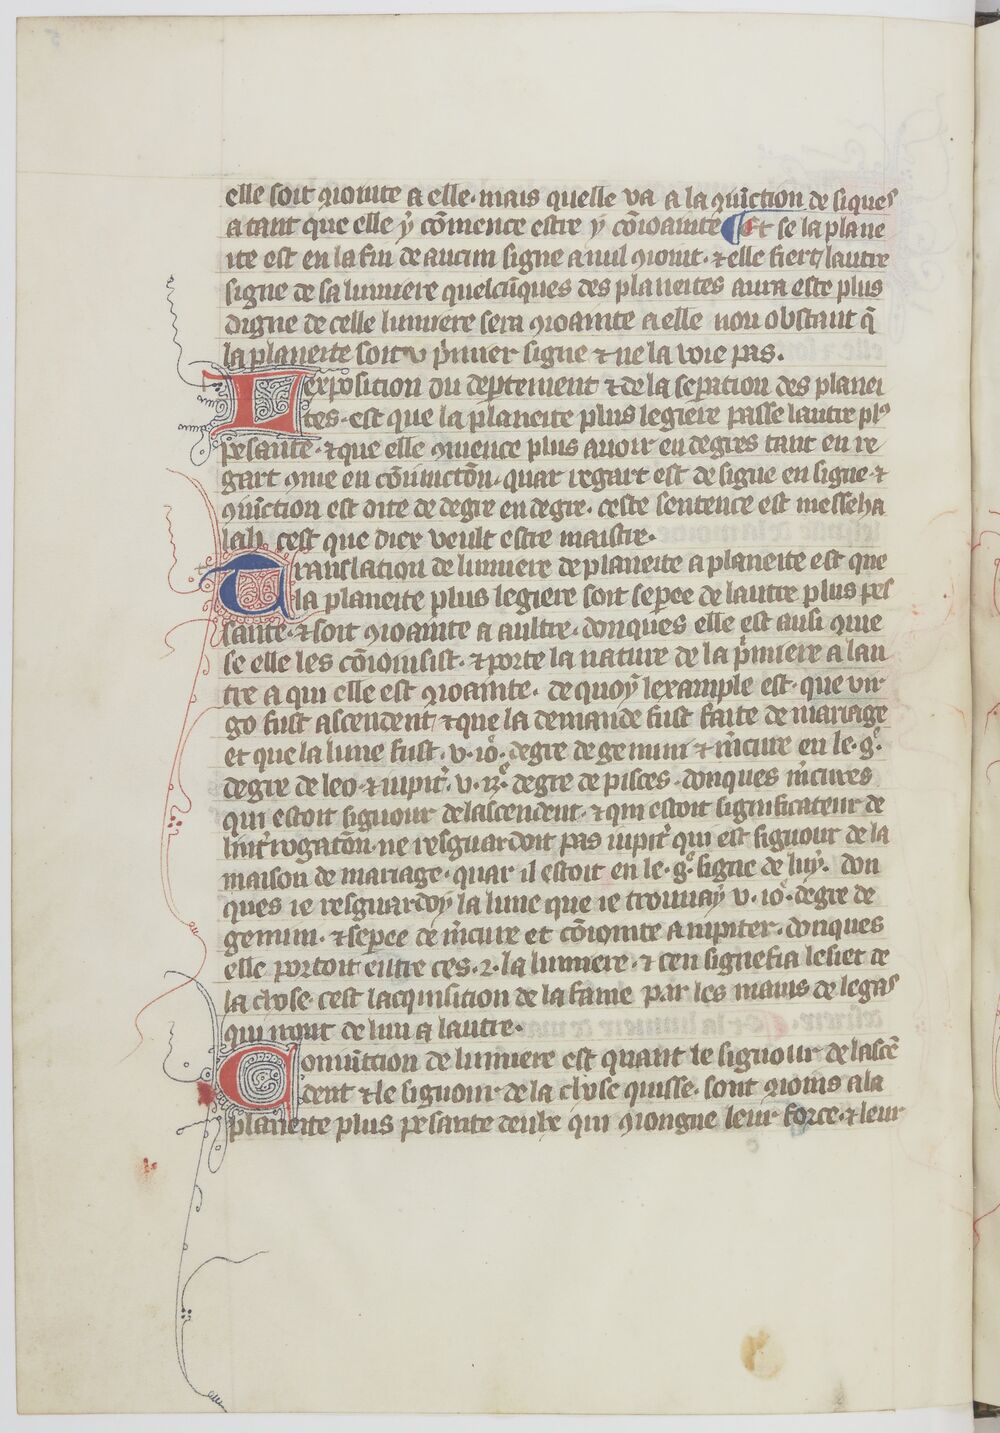 elle soit ꝯiointe a elle · mais quelle va a la ꝯiũction de siques
a tant que elle ẏ cõmence estre ẏ cõioainte ¶ Et se la plane
ite est en la fin de aucun signe a nul ꝯioint · ⁊ elle fiert lautre
signe de sa lumiere quelcũques des planeites aura este plus
digne de celle lumiere sera ꝯioainte a elle non obstant q̃
la planeite soit v p̃mier signe ⁊ ne la voie pas .
Lexposition du deptement ⁊ de la sepation des planei
tes · est que la planeite plus legiere passe lautre plꝰ
pesante · ⁊ que elle ꝯmence plus auoir en degres tant en re
gart ꝯme en cõiunctõn · quar regart est de signe en signe · ⁊
ꝯiũction est dite de degre en degre · ceste sentence est messeha
lah · cest que dier veult estre maistre ·
Translation de lumiere de planeite a planeite est que
la planeite plus legiere soit sepee de lautre plus pes
sante · ⁊ soit ꝯioainte a aultre · donques elle est ausi ꝯme
se elle les cõioinsist · ⁊ porte la nature de la p̃miere a lau
tre a qui elle est ꝯioainte · de quoẏ lexample est · que vir
go fust ascendent ⁊ que la demande fust faite de mariage
et que la lune fust · v · 10ᵉ · degre de gemini ⁊ m̃cure en le · 9ᵉ ·
degre de leo · ⁊ iupit̃ · v · 12ᵉ · degre de pisces · donques m̃cures
qui estoit signour de lascendent · ⁊ qui estoit significateur de
lint̃rogatõn · ne resguardoit pas iupit̃ qui est signour de la
maison de mariage · quar il estoit en le · 9ᵉ · signe de luẏ · don
ques ie resguardoẏ la lune que ie trouuaẏ v · 10ᵉ · degre de
gemini · ⁊ sepee de m̃cure et cõiointe a iupiter · donques
elle portoit entre ces · 2 · la lumiere · ⁊ cen signefia lesiet de
la chose · cest lacquisition de la fame par les mains de legas
qui iront de lun a lautre ·
Coniũtcion de lumiere est quant le signour de lascẽ
dent ⁊ le signour de la chose quisse · sont ꝯioins a la
planeite plus pesante deulx qui ꝯiongne leur force · ⁊ leur